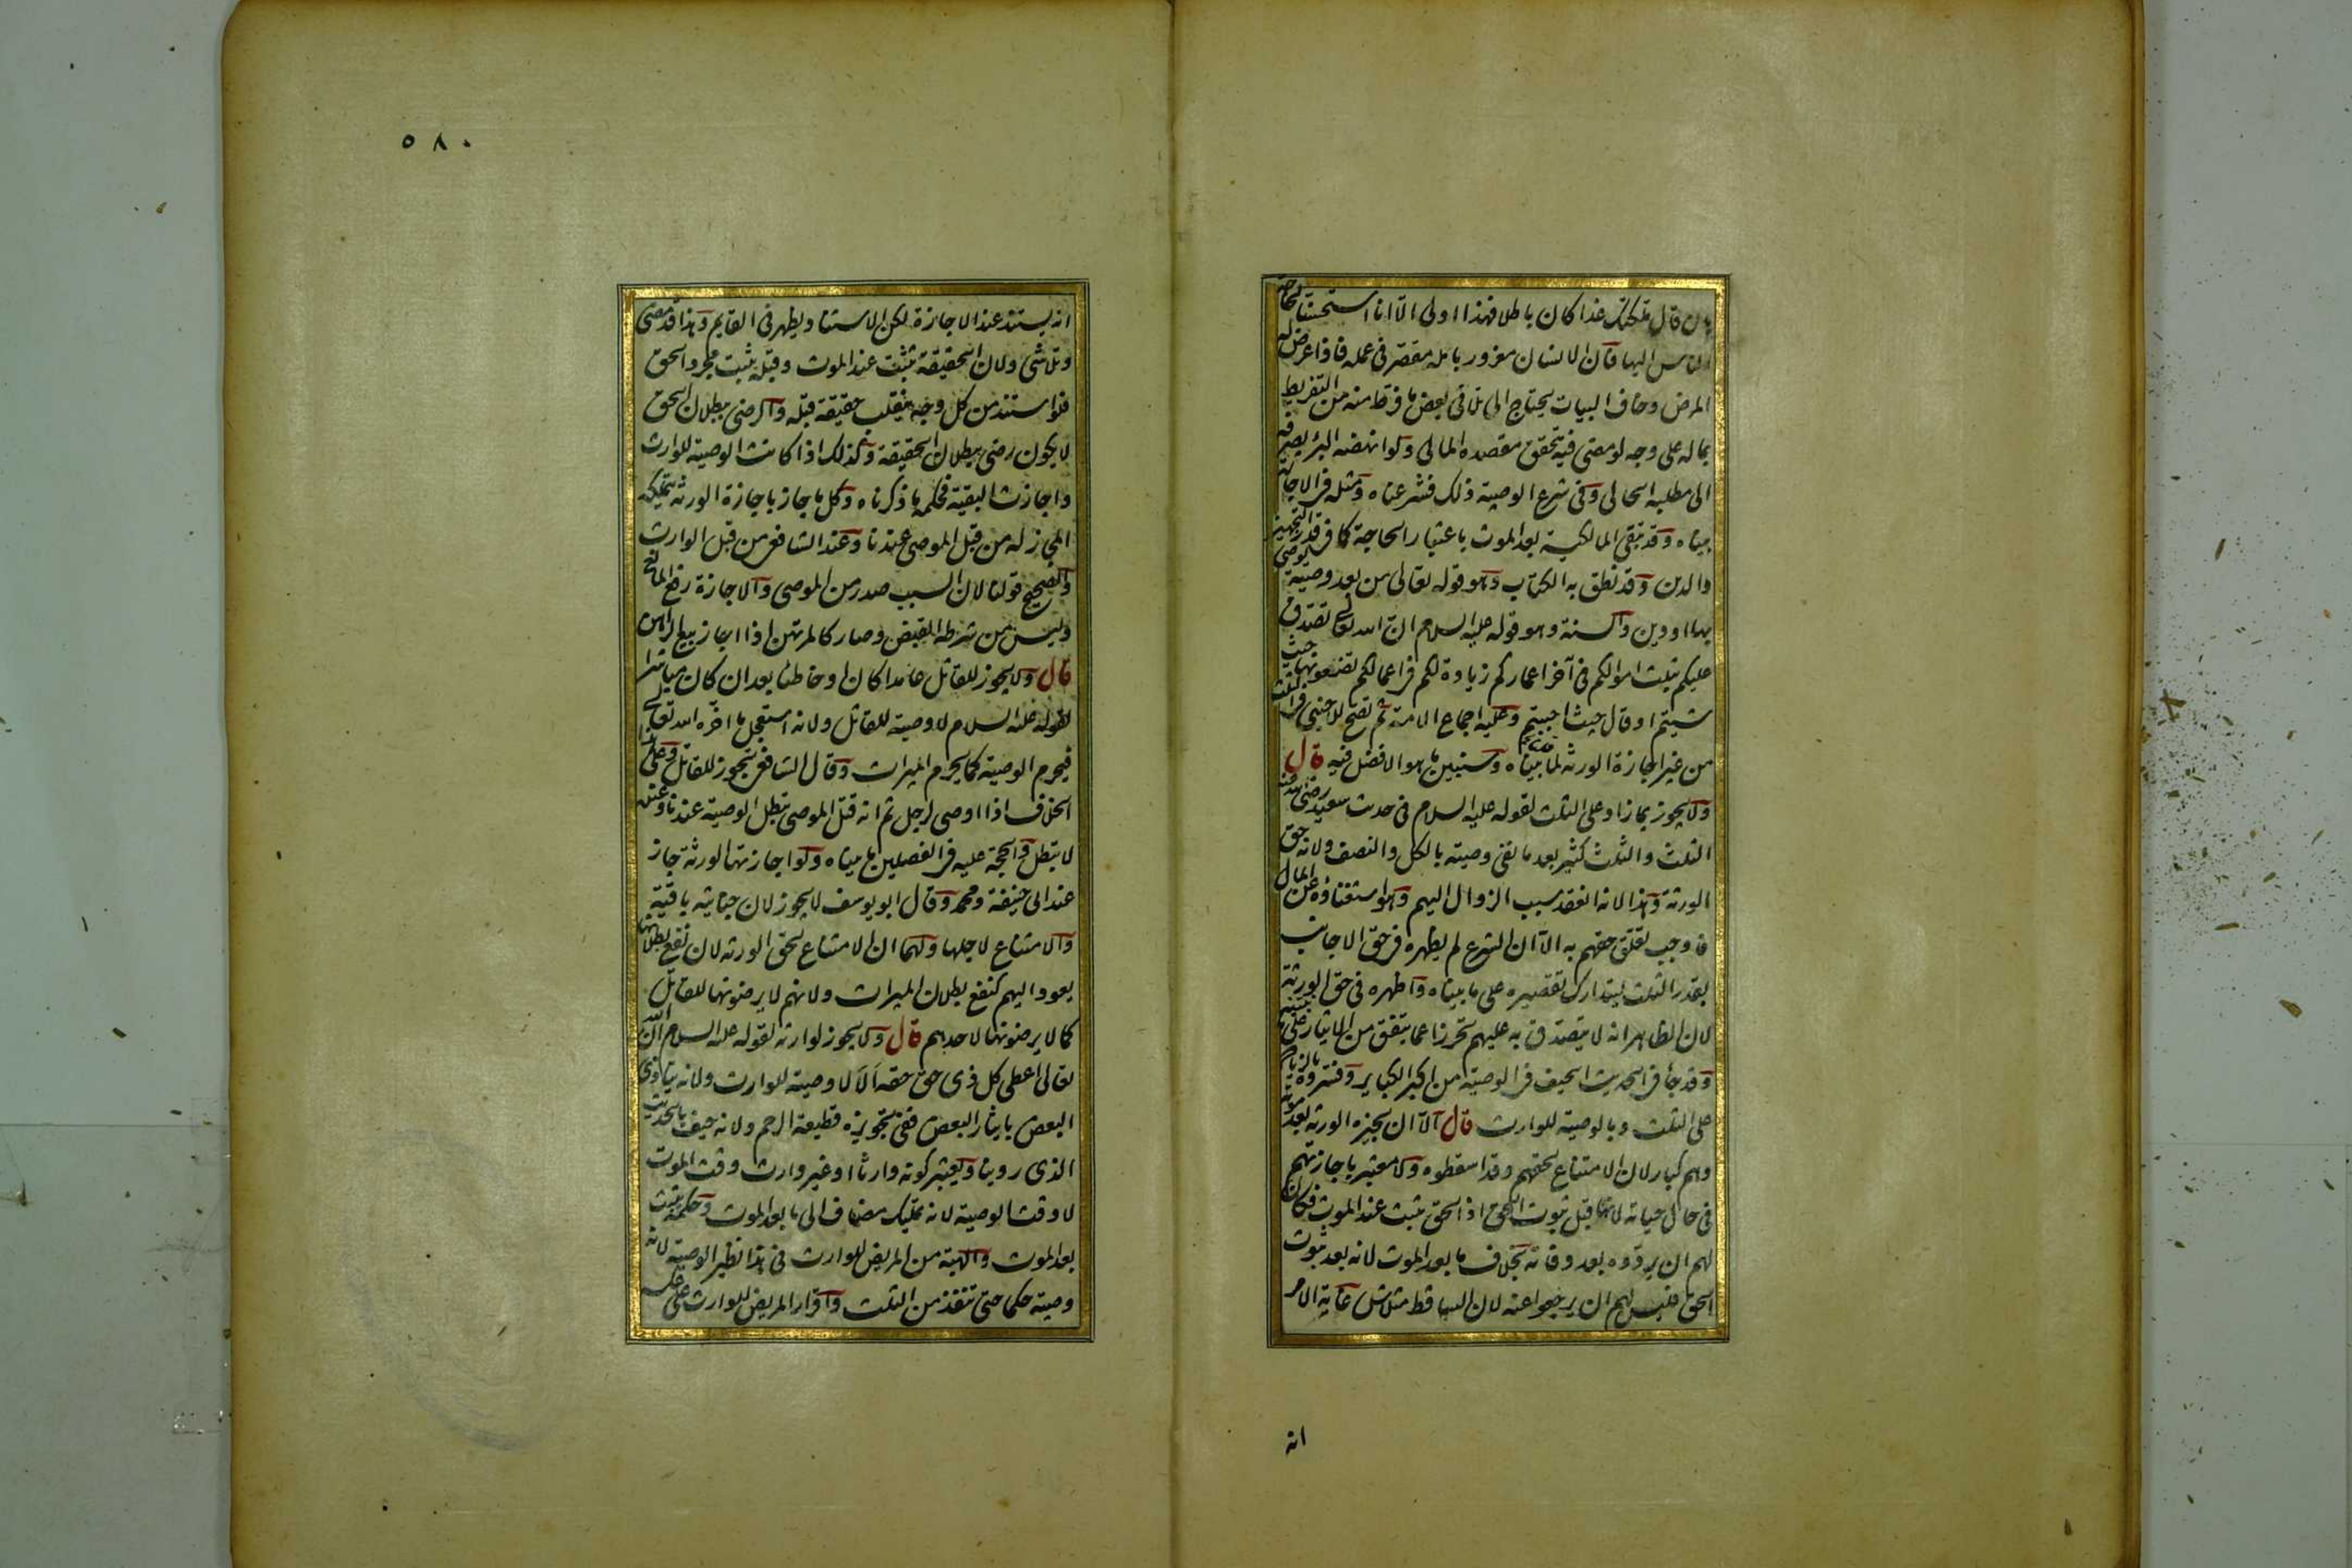 بان قال ملكتك غدا كان باطلا فهذا اولى الا انا استحسناه لحاجة
الناس اليها فان الانسان مغرور بامله مقصر فى عمله فاذا عرض له
المرض وخاف البيات يحتاج الى تلافى بعض ما فرط منه من التفريط
بماله على وجه لو مضى فيه يتحقق مقصده المالى ولو انهضه البرؤ يصرفه
الى مطلبه الحالى وفى شرع الوصية ذلك فشرعناه ومثله فى الاجارة
بيناه وقد تبقى المالكية بعد الموت باعتبار الحاجة كما فى قدر التجهيز
والدين وقد نطق به الكتاب وهو قوله تعالى من بعد وصية يوصى
بها او دين والسنة وهو قوله عليه السلام ان الله تعالى تصدق
عليكم بثلث اموالكم فى آخر اعماركم زيادة لكم فى اعمالكم تضعونها حيث
شئتم او قال حيث احببتم وعليه اجماع الامة ثم تصح للاجنبى فى الثلث
من غير اجازة الورثة لما بيناه وسنبين ما هو الافضل فيه قال
ولا يجوز بما زاد على الثلث لقوله عليه السلام فى حديث سعيد رضى الله عنه
الثلث والثلث كثير بعد ما نفى وصيته بالكل والنصف ولانه حق
الورثة وهذا لانه انعقد سبب الزوال اليهم وهو استغناؤه عن المال
فاوجب تعلق حقهم به الا ان الشرع لم يظهره فى حق الاجانب
بقدر الثلث ليتدارك تقصيره على ما بيناه واظهره فى حق الورثة
لان الظاهر انه لا يتصدق به عليهم تحرزا عما يتفق من الايثار على ما نبينه
وقد جاء فى الحديث الحيف فى الوصية من اكبر الكباير وفسروه بالزيادة
على الثلث وبالوصية للوارث قال الا ان يجيزه الورثة بعد موته
وهم كبار لان الامتناع لحقهم وقد اسقطوه ولا معتبر باجازتهم
فى حال حياته لانها قبل ثبوت الحق اذ الحق يثبت عند الموت فكان
لهم ان يردوه بعد وفاته بخلاف ما بعد الموت لانه بعد ثبوت
الحق فليس لهم ان يرجعوا عنه لان الساقط متلاش غاية الامر
انه
٥٨٠
انه يستند عند الاجازة لكن الاستناد يظهر فى القايم وهذا قد مضى
وتلاشى ولان الحقيقة تثبت عند الموت وقبله يثبت مجرد الحق
فلو استند من كل وجه ينقلب حقيقة قبله والرضى ببطلان الحق
لا يكون رضى ببطلان الحقيقة وكذلك اذا كانت الوصية للوارث
واجازت البقية فحكمه ما ذكرناه وكل ما جاز باجازة الورثة يتملكه
المجاز له من قبل الموصى عندنا وعند الشافعى من قبل الوارث
والصحيح قولنا لان السبب صدر من الموصى والاجازة رفع المانع
وليس من شرطه القبض وصار كالمرتهن اذا اجاز بيع الراهن
قال ولا يجوز للقاتل عامدا كان او خاطئا بعد ان كان مباشرا
لقوله عليه السلام لا وصية للقاتل ولانه استعجل ما اخره الله تعالى
فيحرم الوصية كما يحرم الميراث وقال الشافعى يتجوز للقاتل وعلى هذا
الخلاف اذا اوصى لرجل ثم انه قتل الموصى تبطل الوصية عندنا وعنده
لا تبطل والحجة عليه فى الفصلين ما بيناه ولو اجازتها الورثة جاز
عند ابى حنيفة ومحمد وقال ابو يوسف لا يجوز لان جنايته باقية
والامتناع لاجلها ولهما ان الامتناع لحق الورثة لان نفع بطلانها
يعود اليهم كنفع بطلان الميراث ولانهم لا يرضونها للقاتل
كما لا يرضونها لاحدهم قال ولا يجوز لوارثه لقوله عليه السلام ان الله
تعالى اعطى كل ذى حق حقه الا لا وصية للوارث ولانه يتاذى
البعض بايثار البعض ففى تجويزه قطيعة الرحم ولانه حيف بالحديث
الذى روينا ويعتبر كونه وارثا او غير وارث وقت الموت
لا وقت الوصية لانه تمليك مضاف الى ما بعد الموت وحكمه يثبت
بعد الموت والهبة من المريض للوارث فى هذا نظير الوصية لانه
وصية حكما حتى تنفذ من الثلث واقرار المريض للوارث على عكسه